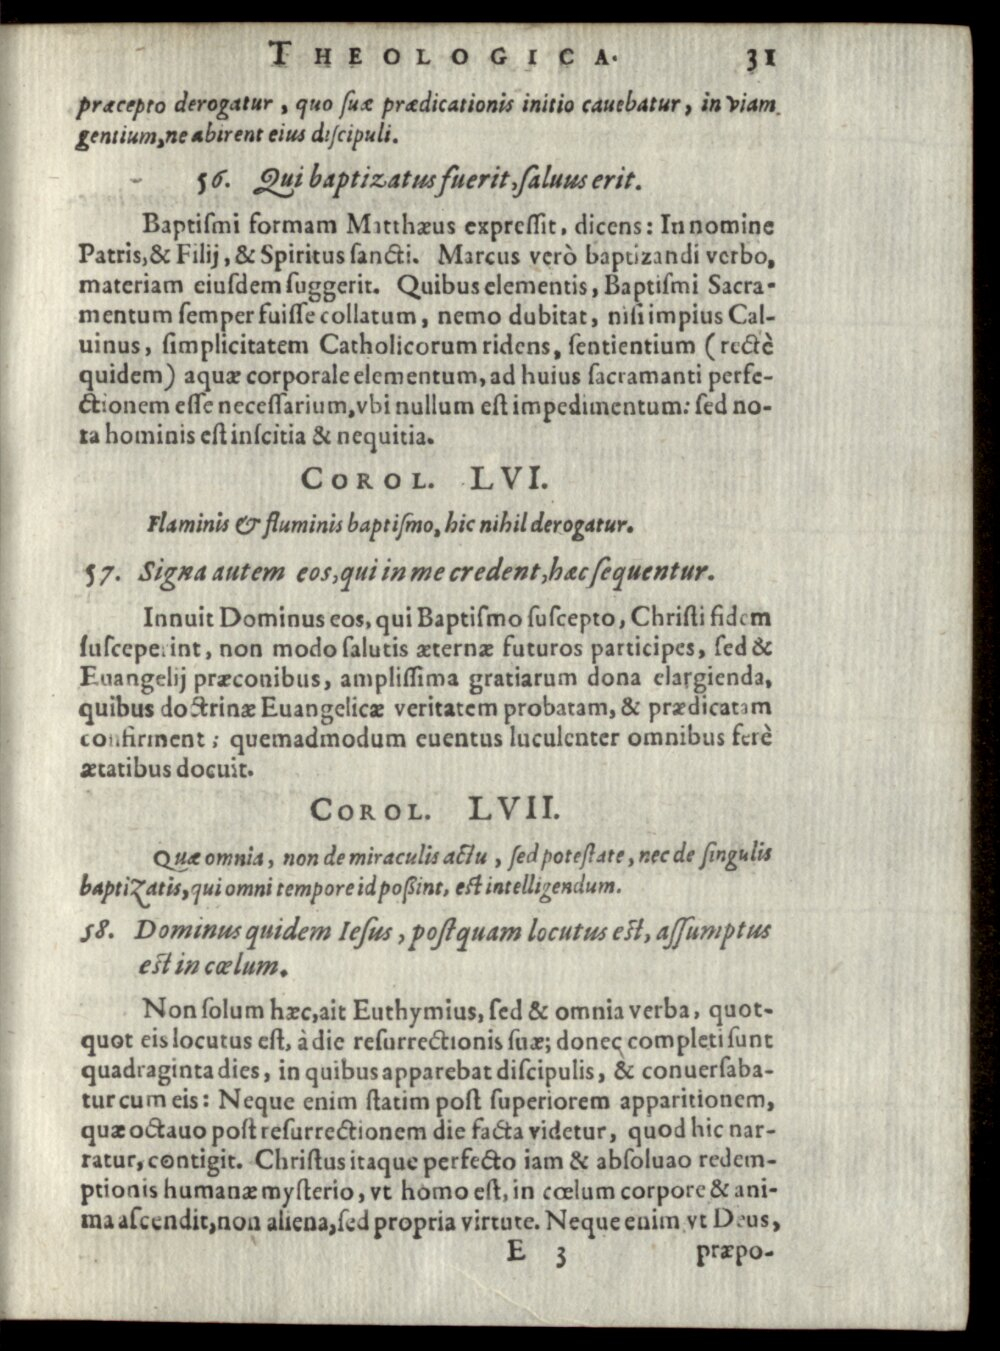 THEOLOGICA. 31
præcepto derogatur, quo ſuæ prædicationis initio cauebatur, in viam
gentium, ne abirent eius diſcipuli.
56. Qui baptizatus fuerit, ſaluus erit.
Baptiſmi formam Matthæus expreſſit, dicens: In nomine
Patris, & Filij, & Spiritus ſancti. Marcus verò baptizandi verbo,
materiam eiuſdem ſuggerit. Quibus elementis, Baptiſmi Sacra-
mentum ſemper fuiſſe collatum, nemo dubitat, niſi impius Cal-
uinus, ſimplicitatem Catholicorum ridens, ſentientium (rectè
quidem) aquæ corporale elementum, ad huius ſacramanti perfe-
ctionem eſſe neceſſarium, vbi nullum eſt impedimentum: ſed no-
ta hominis eſt inſcitia & nequitia.
COROL. LVI.
Flaminis & fluminis baptiſmo, hic nihil derogatur.
57. Signa autem eos, qui in me credent, hæc ſequentur.
Innuit Dominus eos, qui Baptiſmo ſuſcepto, Chriſti fidem
ſuſceperint, non modo ſalutis æternæ futuros participes, ſed &
Euangelij præconibus, ampliſſima gratiarum dona elargienda,
quibus doctrinæ Euangelicæ veritatem probatam, & prædicatam
confirment; quemadmodum euentus luculenter omnibus ferè
ætatibus docuit.
COROL. LVII.
Quæ omnia, non de miraculis actu, ſed poteſtate, nec de ſingulis
baptizatis, qui omni tempore id poßint, eſt intelligendum.
58. Dominus quidem Ieſus, poſtquam locutus eſt, aſſumptus
eſt in cœlum.
Non ſolum hæc, ait Euthymius, ſed & omnia verba, quot-
quot eis locutus eſt, à die reſurrectionis ſuæ; donec completi ſunt
quadraginta dies, in quibus apparebat diſcipulis, & conuerſaba-
tur cum eis: Neque enim ſtatim poſt ſuperiorem apparitionem,
quæ octauo poſt reſurrectionem die facta videtur, quod hic nar-
ratur, contigit. Chriſtus itaque perfecto iam & abſoluao redem-
ptionis humanæ myſterio, vt homo eſt, in cœlum corpore & ani-
ma aſcendit, non aliena, ſed propria virtute. Neque enim vt Deus,
E 3 præpo-